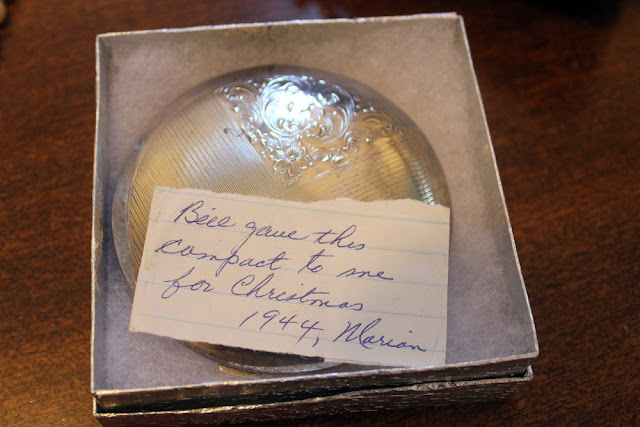 Bill gave this
compact to me
for Christmas
1944, Marian